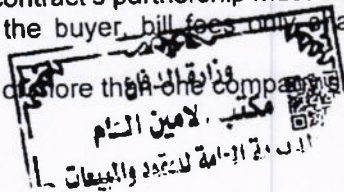 contract's partnership must
the buyer, bill fees only
of more than one company
وزارة الدفاع
مكتب الامين العام
المديرية العامة للعقود والمبيعات